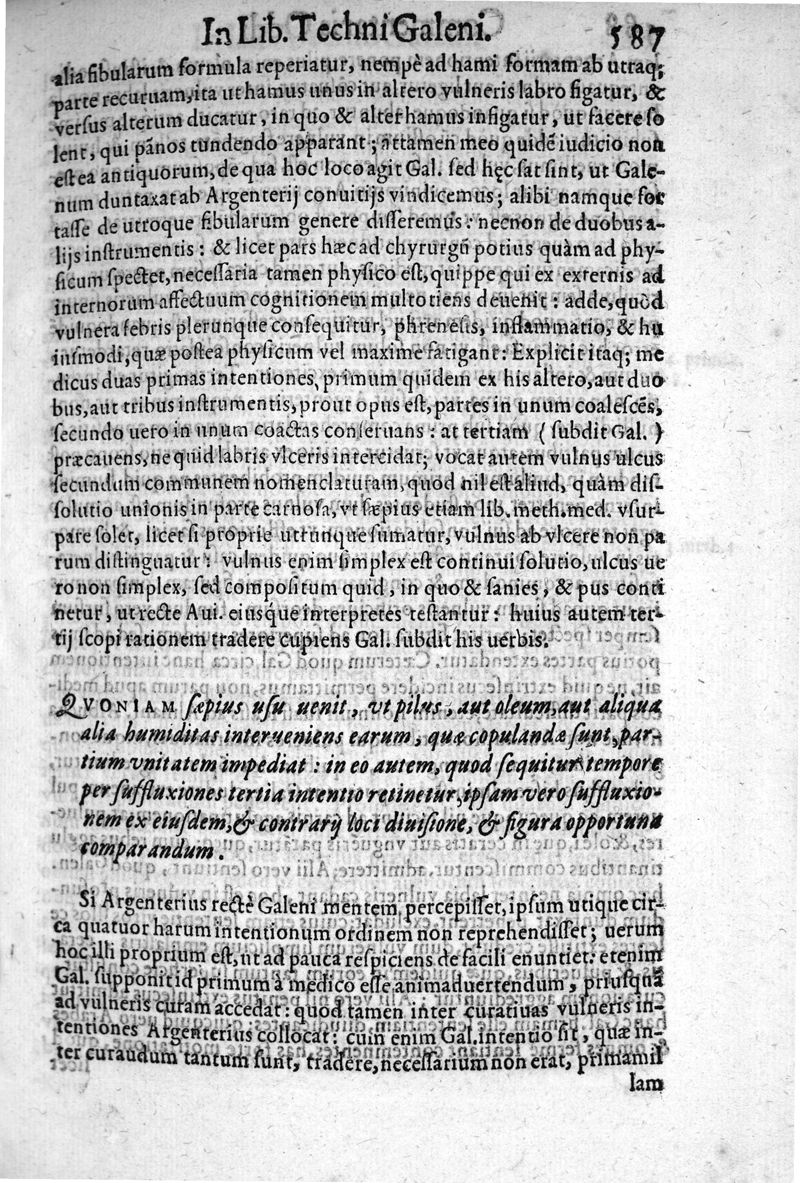 In Lib. Techni Galeni. 587
alia fibularum formula reperiatur, nempè ad hami formam ab utraq;
parte recuruam, ita ut hamus unus in altero vulneris labro figatur, &
versus alterum ducatur, in quo & alter hamus infigatur, ut facere so
lent, qui pānos tundendo apparant; attamen meo quidē iudicio non
est ea antiquorum, de qua hoc loco agit Gal. sed hęc sat sint, ut Gale-
num duntaxat ab Argenterij conuitijs vindicemus; alibi namque for
tasse de utroque fibularum genere disseremus: necnon de duobus a-
lijs instrumentis: & licet pars hæc ad chyrurgũ potius quàm ad phy-
sicum spectet, necessaria tamen physico est, quippe qui ex externis ad
internorum affectuum cognitionem multotiens deuenit: adde, quòd
vulnera febris plerunque consequitur, phrenesis, inflammatio, & hu
iusmodi, quæ postea physicum vel maxime fatigant: Explicit itaq; me
dicus duas primas intentiones, primum quidem ex his altero, aut duo
bus, aut tribus instrumentis, prout opus est, partes in unum coalescẽs,
secundo uero in unum coactas conseruans: at tertiam ( subdit Gal. )
præcauens, ne quid labris vlceris intercidat; vocat autem vulnus ulcus
secundum communem nomenclaturam, quod nil est aliud, quàm dis-
solutio unionis in parte carnosa, vt sæpius etiam lib. meth. med. vsur-
pare solet, licet si proprie utrunque sumatur, vulnus ab vlcere non pa
rum distinguatur: vulnus enim simplex est continui solutio, ulcus ue
ro non simplex, sed compositum quid, in quo & sanies, & pus conti
netur, ut recte Aui. eiusque interpretes testantur: huius autem ter-
tij scopi rationem tradere cupiens Gal. subdit his uerbis.
QVONIAM sæpius usu uenit, vt pilus, aut oleum, aut aliqua
alia humiditas interueniens earum, quæ copulandæ sunt, par-
tium vnitatem impediat: in eo autem, quod sequitur tempore
per suffluxiones tertia intentio retinetur, ipsam vero suffluxio-
nem ex eiusdem, & contrarij loci diuisione, & figura opportuna
comparandum.
Si Argenterius rectè Galeni mentem percepisset, ipsum utique cir-
ca quatuor harum intentionum ordinem non reprehendisset; uerum
hoc illi proprium est, ut ad pauca respiciens de facili enuntiet: etenim
Gal. supponit id primum à medico esse animaduertendum, priusquã
ad vulneris curam accedat: quod tamen inter curatiuas vulneris in-
tentiones Argenterius collocat: cum enim Gal. intentio sit, quæ in-
ter curandum tantum sunt, tradere, necessarium non erat, primam il
lam